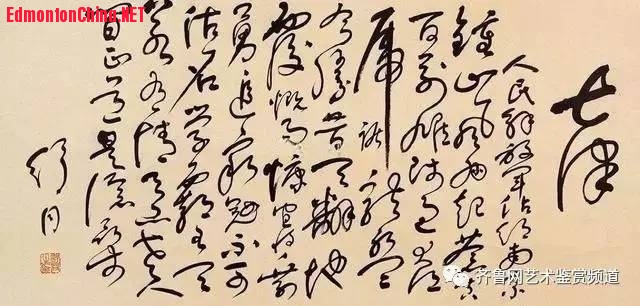 EdmontonChina.NET
七律
人民解放軍佔領南京
鍾山風雨起蒼黃
百万雄師過大江
虎踞龍盤
今勝昔天翻地
覆慨而慷宜將剩
勇追窮寇不可
沽名學霸王天
若有情天亦老人
間正道是滄桑
舒同
齐鲁网艺术鉴赏频道